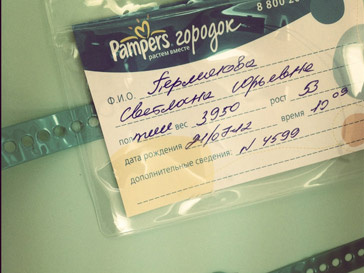 8 800 2
Pampers городок
растем вместе
Ф.И.О. Пермякова
Светлана Юрьевна
пол жен вес 3950 рост 53
дата рождения 21/07-12 время 10 09
дополнительные сведения: N 4599